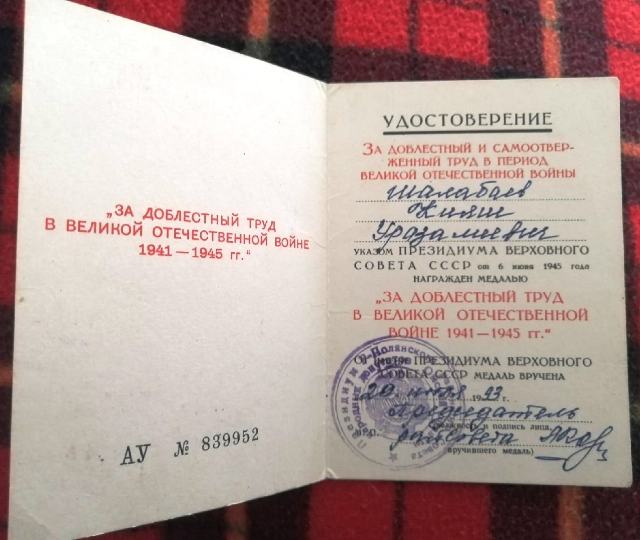 „ЗА ДОБЛЕСТНЫЙ ТРУД
В ВЕЛИКОЙ ОТЕЧЕСТВЕННОЙ ВОЙНЕ
1941 — 1945 гг.“
АУ № 839952
УДОСТОВЕРЕНИЕ
ЗА ДОБЛЕСТНЫЙ И САМООТВЕР-
ЖЕННЫЙ ТРУД В ПЕРИОД
ВЕЛИКОЙ ОТЕЧЕСТВЕННОЙ ВОЙНЫ
Шалабаев
Кияш
указом ПРЕЗИДИУМА ВЕРХОВНОГО
СОВЕТА СССР от 6 июня 1945 года
НАГРАЖДЕН МЕДАЛЬЮ
„ЗА ДОБЛЕСТНЫЙ ТРУД
В ВЕЛИКОЙ ОТЕЧЕСТВЕННОЙ
ВОЙНЕ 1941 — 1945 гг.“
ПРЕЗИДИУМА ВЕРХОВНОГО
СОВЕТА СССР МЕДАЛЬ ВРУЧЕНА
20 г.
Председатель
и подпись лица,
вручившего медаль)
Президиум